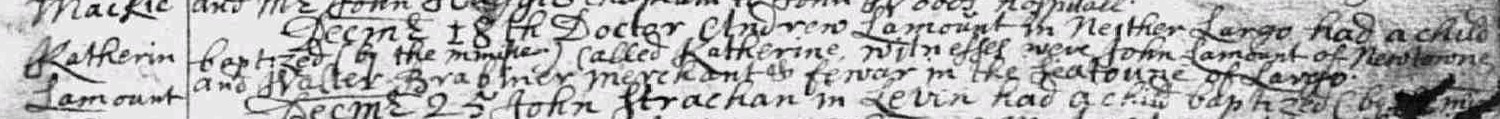 Mackie and Mr John
Decmr 18th Doctor Andrew Lamount in Neither Largo had a child
Katherin baptized (by the minister) called Katherine, witnesses were John Lamount of Newtowne
Lamount and Walter merchant & fewar in the Seatoune of Largo.
Decmr 25 John Strachan in Levin had a child baptized (by